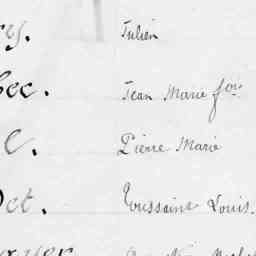 y. Julien
ec. Jean Marie fois
c. Pierre Marie
oct. Toussaint Louis.